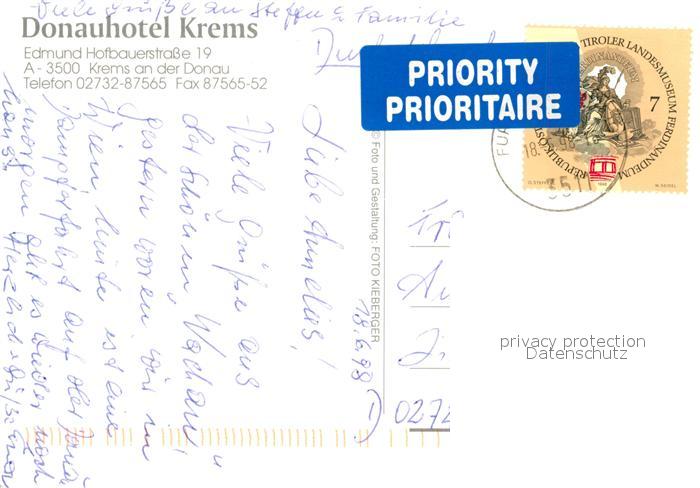 Viele Grüße an Steffen u. Familie
Donauhotel Krems
Edmund Hofbauerstraße 19
A - 3500 Krems an der Donau
Telefon 02732-87565 Fax 87565-52
PRIORITY
PRIORITAIRE
TIROLER LANDESMUSEUM FERDINANDEUM
REPUBLIK ÖST
7
18.
98
3511
© Foto und Gestaltung: FOTO KIEBERGER
18.6.98
Liebe Annelies!
Viele Grüße aus
der schönen "Wachau"
gestern waren wir in
Wien heute ist eine
Dampferfahrt auf der Donau
morgen geht es wieder nach
Hause.
Herzliche Grüße
D 0272
privacy protection
Datenschutz